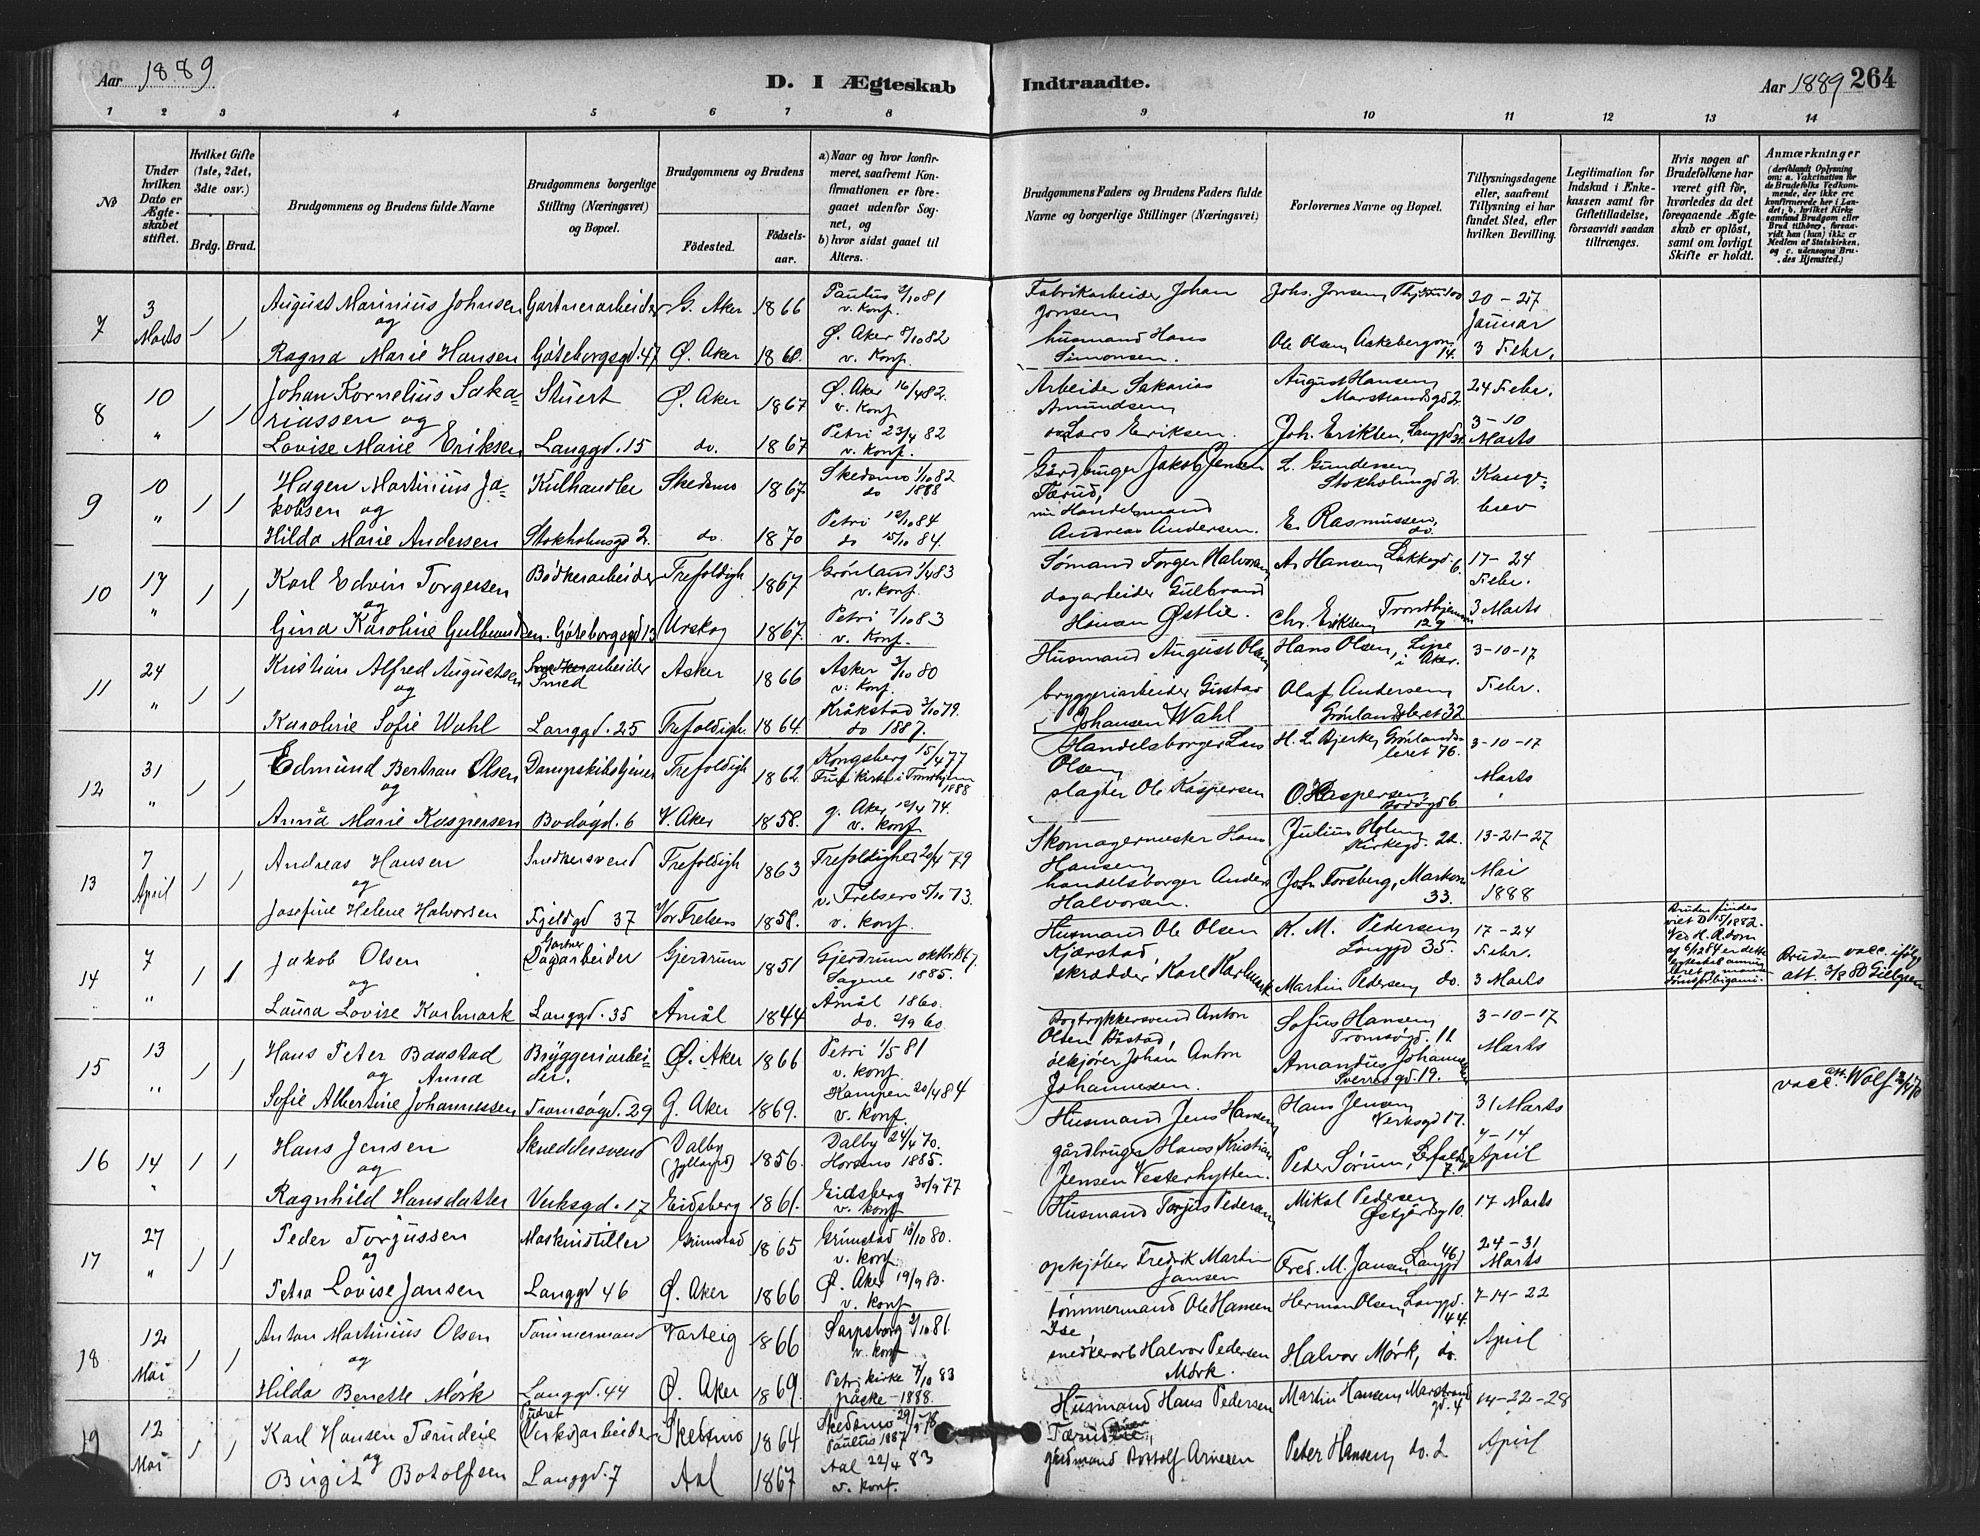 Aar 1889
D. I Ægteskab
Indtraadte.
Aar 1889 264
1 2 3 4 5 6 7 8 9 10 11 12 13 14
No
Under hvilken Dato er Ægteskabet stiftet.
Hvilket Gifte (1ste, 2det, 3die osv.)
Brdg. Brud.
Brudgommens og Brudens fulde Navne
Brudgommens borgerlige Stilling (Næringsvei) og Bopæl.
Brudgommens og Brudens
Fødested. Fødselsaar.
a) Naar og hvor konfirmeret, saafremt Konfirmationen er foregaaet udenfor Sognet, og
b) hvor sidst gaaet til Alters.
Brudgommens Faders og Brudens Faders fulde Navne og borgerlige Stillinger (Næringsvei)
Forlovernes Navne og Bopæl.
Tillysningsdagene eller, saafremt Tillysning ei har fundet Sted, efter hvilken Bevilling.
Legitimation for Indskud i Enkekassen samt for Giftetilladelse, forsaavidt saadan tiltrænges.
Hvis nogen af Brudefolkene har været gift før, hvorledes da det foregaaende Ægteskab er opløst, samt om lovligt Skifte er holdt.
Anmærkninger
(deriblandt Oplysning om: a. Vakcination for de Brudefolks Vedkommende, der ikke ere konfirmerede her i Landet; b. hvilket Kirkesamfund Brudgom eller Brud tilhører, forsaavidt han (hun) ikke er Medlem af Statskirken, og c. udensogns Brudes Hjemsted.)
7 3 Marts 1 1 August Marinius Johnsen Gartnerarbeider G. Aker 1866 Paulus 2/10 81 v. konf. Fabrikarbeider Johan Jonsen Johs. Jonsen 20-27 Januar
og
Ragna Marie Hansen Göteborgsgd. 47 Ø. Aker 1860. Ø. Aker 8/10 82 v. konf. husmand Hans Simonsen. Ole Olsen, Aakebergvn 14. 3 Febr.
8 10 " 1 1 Johan Kornelius Sakariassen og Stuert Ø. Aker 1867 Ø. Aker 16/4 82. v. konf Arbeider Sakarias Amundsen August Hansen Marstrandsgd 2. 24 Febr.
Lovise Marie Eriksen Langgd. 15 do. 1867 Petri 23/4 82 v. konf. Lars Eriksen. Joh. Eriksen, Langgd 3-10 Marts
9 10 " 1 1 Hagen Martinius Jakobsen og Kulhandler Skedsmo 1867 Skedsmo 1/10 82 do 1888 Gårdbruger Jakob Jensen Tærud, L. Gundersen Stokholmsgd 2. Kongebrev
Hilda Marie Andersen Stokholmsgd 2. do. 1870 Petri 12/10 84 do 15/10 84. Handelsmand Andreas Andersen. E. Rasmussen, do.
10 17 " 1 1 Karl Edvin Torgersen Bødkerarbeider Trefoldigh 1867 Grønland 1/4 83 v. konf. Sømand Torger Halvorsen A. Hansen, Lakkegd. 6. 17-24 Febr.
og
Gina Karoline Gulbrandsen. Göteborgsgd 13 Urskog 1867. Petri 7/10 83 v. konf. dagarbeider Gulbrand Østlie. Chr. Eriksen, 3 Marts
11 24 " 1 1 Kristian Alfred Augustsen Smed Asker 1866 Asker 3/10 80 v. konf. Husmand August Olsen Hans Olsen, i Aker. 3-10-17 Febr.
og
Karoline Sofie Wahl Langgd. 25 Trefoldigh 1864. Kråkstad 3/10 79. do 1887. bryggeriarbeider Gustav Johansen Wahl Olaf Andersen Grønlandsleret 32
12 31 " 1 1 Edmund Bertran Olsen Dampskibstjener Trefoldigh 1862. Kongsberg 15/4 77 Frue kirke i Trondhjem 1888 Handelsborger Lars Olsen H. L. Bjerke, Grønlandsleret 76. 3-10-17 Marts
og
Anna Marie Kaspersen Bodøgd. 6 V. Aker 1858. g. Aker 12/4 74. v. konf slagter Ole Kaspersen O. Kaspersen Bodøgd 6
13 7 April 1 1 Andreas Hansen Snedkersvend Trefoldigh 1863 Trefoldighed 20/4 79 Skomagermester Hans Hansen Julius Holm Kirkegd. 22. 13-21-27 Mai 1888
og
Josefine Helene Halvorsen Fjeldgd 37 Vor Frelsers 1858. v. Frelsers 5/10 73. v. konf. handelsborger Anders Halvorsen. Joh. Forsberg, 33.
14 7 " 1 1 Jakob Olsen Gartner Dagarbeider Gjerdrum 1851 Gjerdrum oktbr. 67. Sagene 1885. Husmand Ole Olsen Kjærstad K. M. Pedersen Langgd 35. 17-24 Febr.
og
Laura Lovise Karlmark Langgd. 35 Åmål 1844 Åmål 1860. do. 2/9 60. skrædder Karl Karlmark Martin Pedersen do. 3 Marts
Bruden vacc. ifølge att. 3/8 80
15 13 " 1 1 Hans Peter Baastad Bryggeriarbeider. Ø. Aker 1866 Petri 1/5 81 v. konf. Bogtrykkersvend Anton Olsen Båstad Sofus Hansen Tromsøgd. 11. 3-10-17 Marts
og Anna
Sofie Albertine Johannessen Tromsøgd. 29 G. Aker 1869. Kampen 20/4 84 v. konf. ølkjører Johan Anton Johannesen. Amandus Johannesen Sverresgd. 19. vacc. att. Wolf
16 14 " 1 1 Hans Jensen Skreddersvend Dalby (Jylland) 1856. Dalby 24/4 70. Horsens 1885. Husmand Jens Hansen Hans Jensen Verksgd 17. 31 Marts
og
Ragnhild Hansdatter Verksgd. 17 Eidsberg 1861. Eidsberg 30/9 77 v. konf gårdbruger Hans Kristian Jensen Vesterhytten. Peder Sørum, 7. 7-14 April
17 27 " 1 1 Peder Torjussen Maskinstiller Grimstad 1865 Grimstad 10/10 80. v. konf. Husmand Torjus Pedersen Mikal Pedersen 10. 17 Marts
og
Petra Lovise Jansen Langgd 46 Ø. Aker 1866 Ø. Aker 19/9 80. v. konf opkjøber Fredrik Martin Jansen Fred. M. Jansen Langgd 46 24-31 Marts
18 12 Mai 1 1 Anton Martinius Olsen Tømmermand Varteig 1866 Sarpsborg 2/10 81. v. konf tømmermand Ole Hansen Ise, Herman Olsen, Langgd. 44. 7-14-22 April
og
Hilda Benette Mørk Langgd. 44 Ø. Aker 1869. Petri kirke 7/10 83 påske - 1888. snedkerarb Halvor Pedersen Mørk. Halvor Mørk, do.
19 12 Mai 1 1 Karl Hansen Tærudeie (Verks)arbeider Skedsmo 1864 Skedsmo Paulus 1887 Husmand Hans Pedersen Martin Hansen, Marstrandgd. 4 14-22-28 April
og
Birgit Botolfsen Langgd. 7 Aal 1867 Aal 22/4 83 v. konf. Botolf Arnesen Peter Hansen, do. 2